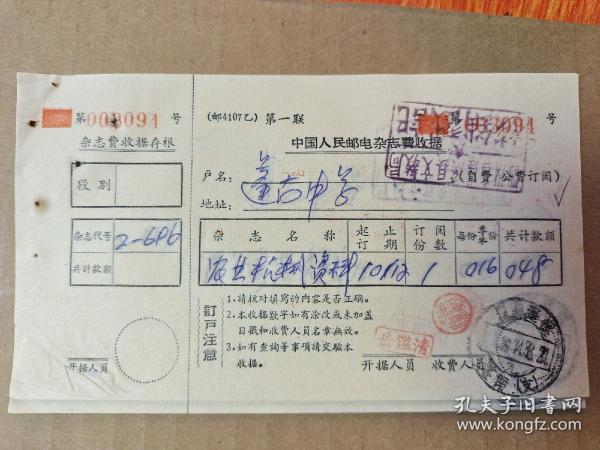 第003094号
杂志費收据存根
段别
杂志代号 2-686
共计款額
开据人员
(邮4107乙) 第一联
第003094号
中国人民邮电杂志費收据
户名: 蓬安中学 (自費/公費订阅)
地址:
杂志名称 起止订期 订阅份数 每份季价 共计款额
资料 10/12 1 016 048
訂戶注意
1.请核对填写的内容是否正确。
2.本收据数字如有涂改或未加盖
日戳和收费人员名章無效。
3.如有查詢等事項请交驗本
收据。
开据人员 收费人员
孔夫子旧书网
www.kongfz.com